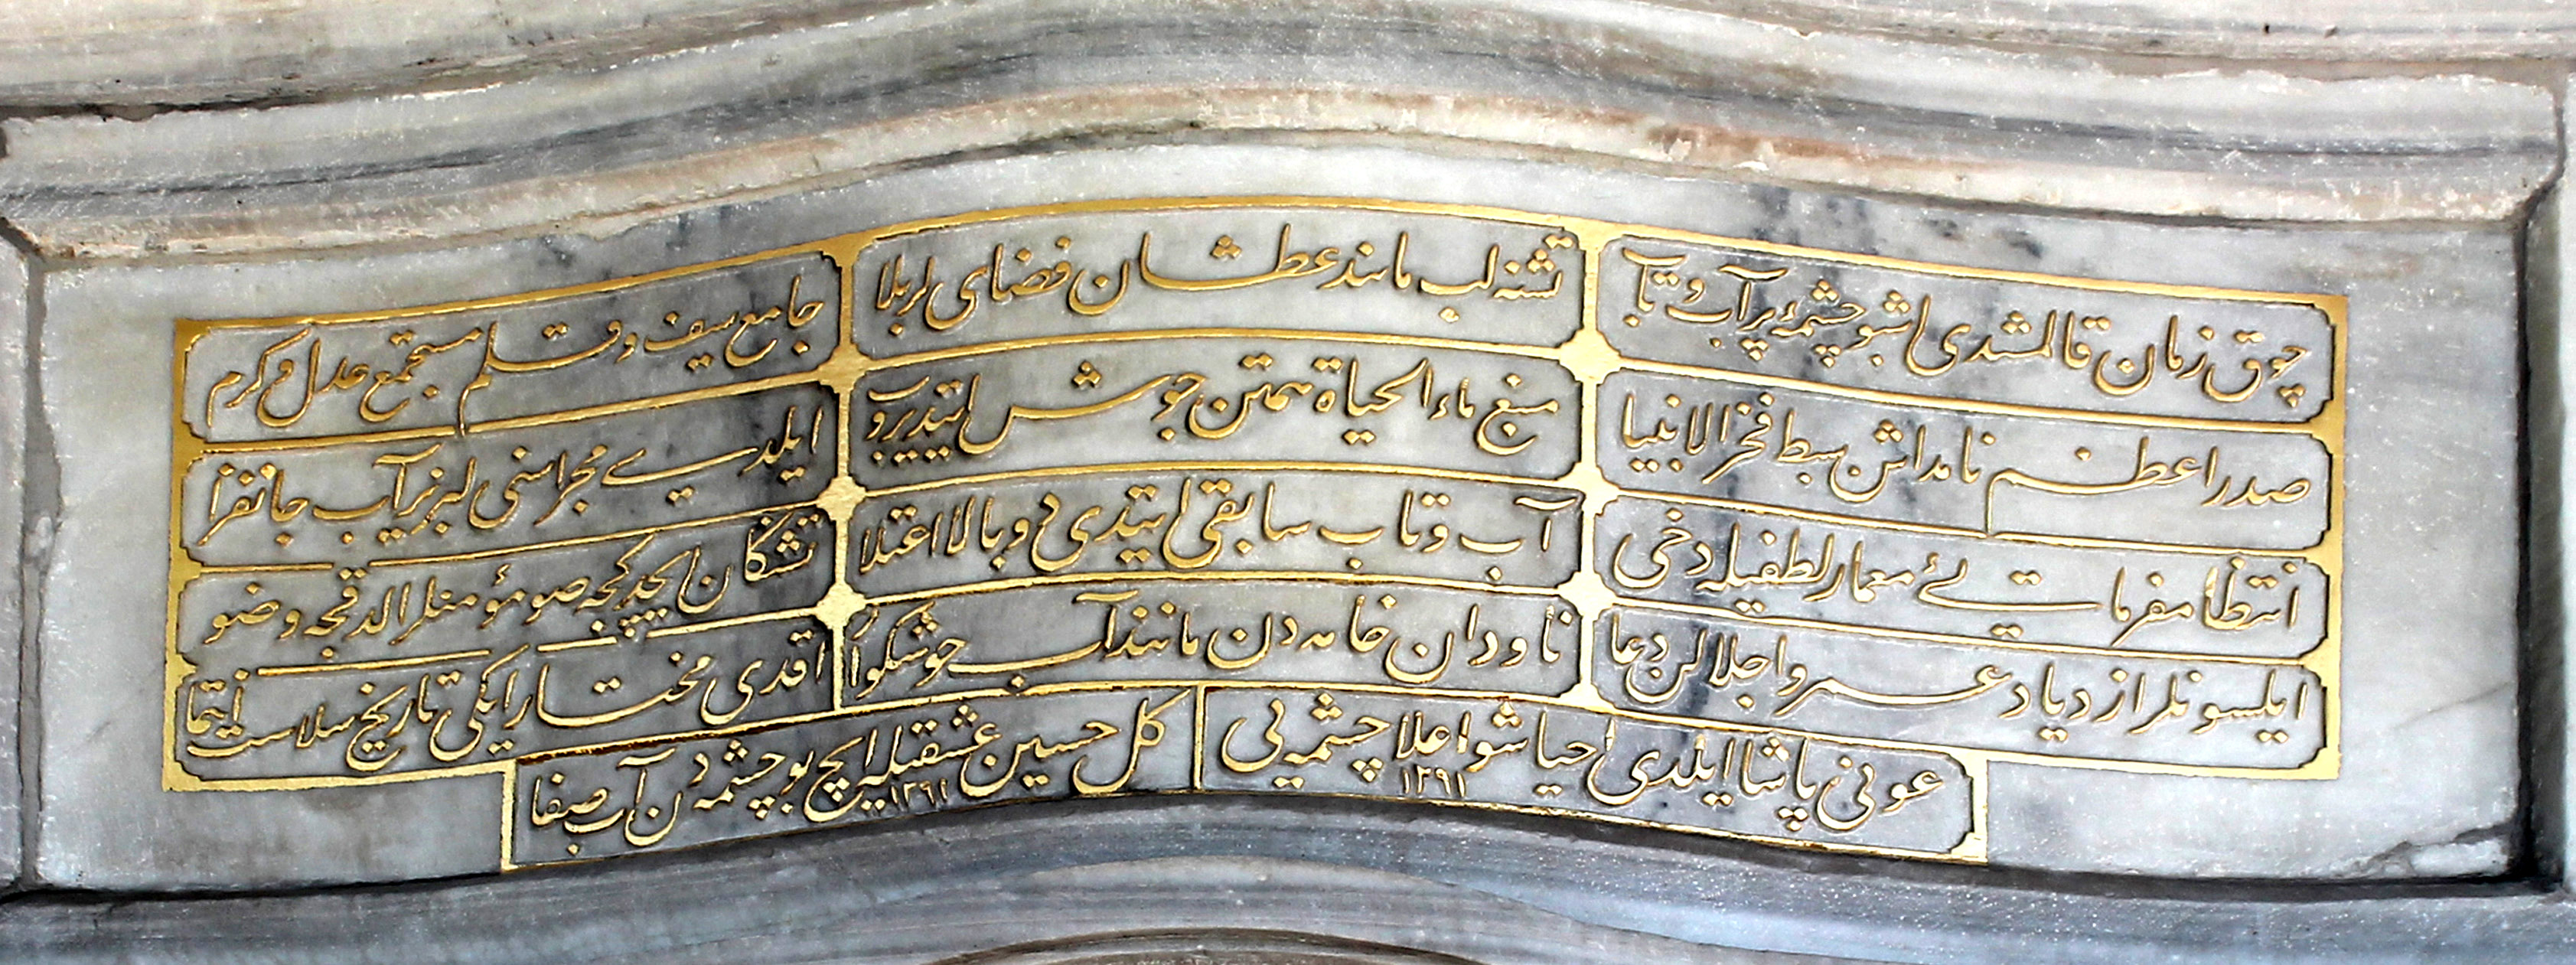 چوق زمان قالمشدی اشبو چشمهٔ پر آب و تاب
تشنه لب مانند عطشان فضای کربلا
جامع سیف و قلم مستجمع عدل و کرم
صدر اعظم نامداش سبط فخر الانبیا
منبع ماء الحیاة همتن جوش ایتدیروب
ایلدی مجراسنی لبریز آب جانفزا
انتظام فرمایئ معمار لطفیله دخی
آب و تاب سابقی ایتدی دوبالا اعتلا
تشنگان ایچدکجه صو مؤمنلر الدقجه وضو
ایلسونلر ازدیاد عمر و اجلالن دعا
ناودان خامه دن مانند آب خوشکوار
اقدی مختار ایکی تاریخ سلاست انتما
عونی پاشا ایلدی احیا شو اعلا چشمه یی
١٢٩١
کل حسین عشقیله ایچ بو چشمه دن آب صفا
١٢٩١